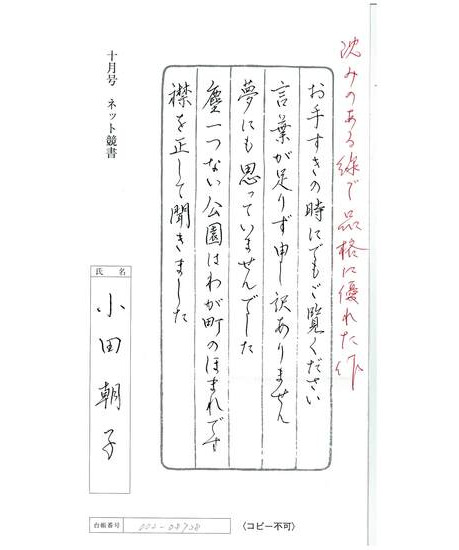 沈みのある線で品格に優れた作
お手すきの時にでもご覧ください
言葉が足りず申し訳ありません
夢にも思っていませんでした
塵一つない公園はわが町のほまれです
襟を正して聞きました
十月号 ネット競書
氏 名
小田朝子
台帳番号
〈コピー不可〉